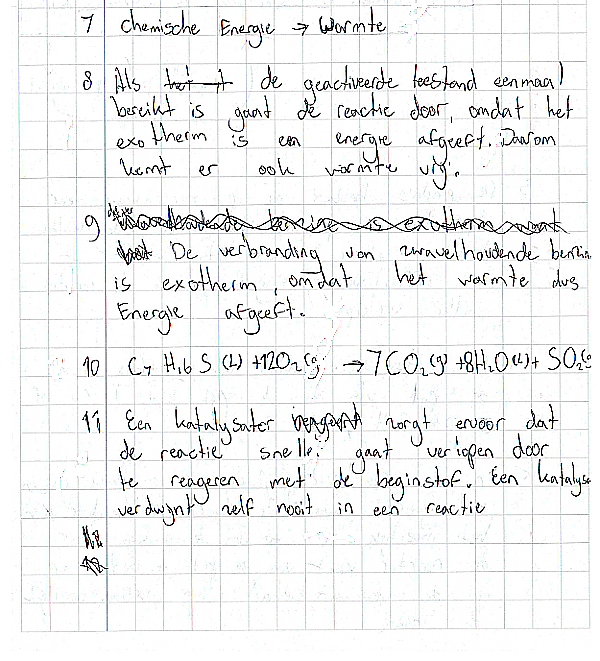 7 Chemische Energie → Warmte
8 Als het de geactiveerde toestand eenmaal
bereikt is gaat de reactie door, omdat het
exotherm is en energie afgeeft. Daarom
komt er ook warmte vrij.
9
De verbranding van zwavelhoudende benzin
is exotherm, omdat het warmte dus
Energie afgeeft.
10 C7 H16 S (l) + 12O2 (g) → 7CO2 (g) + 8H2O (l) + SO2 (g
11 Een katalysator zorgt ervoor dat
de reactie sneller gaat verlopen door
te reageren met de beginstof. Een katalysa
verdwijnt zelf nooit in een reactie